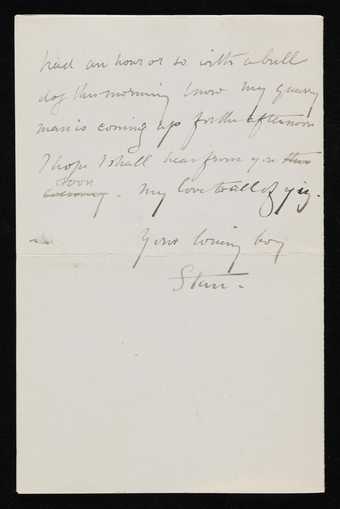 had an hour or so with a bull
dog this morning & now my quarry
man is coming up for the afternoon
I hope I shall hear from you this
soon
evening. My love to all of you.
Your loving boy
Stan.